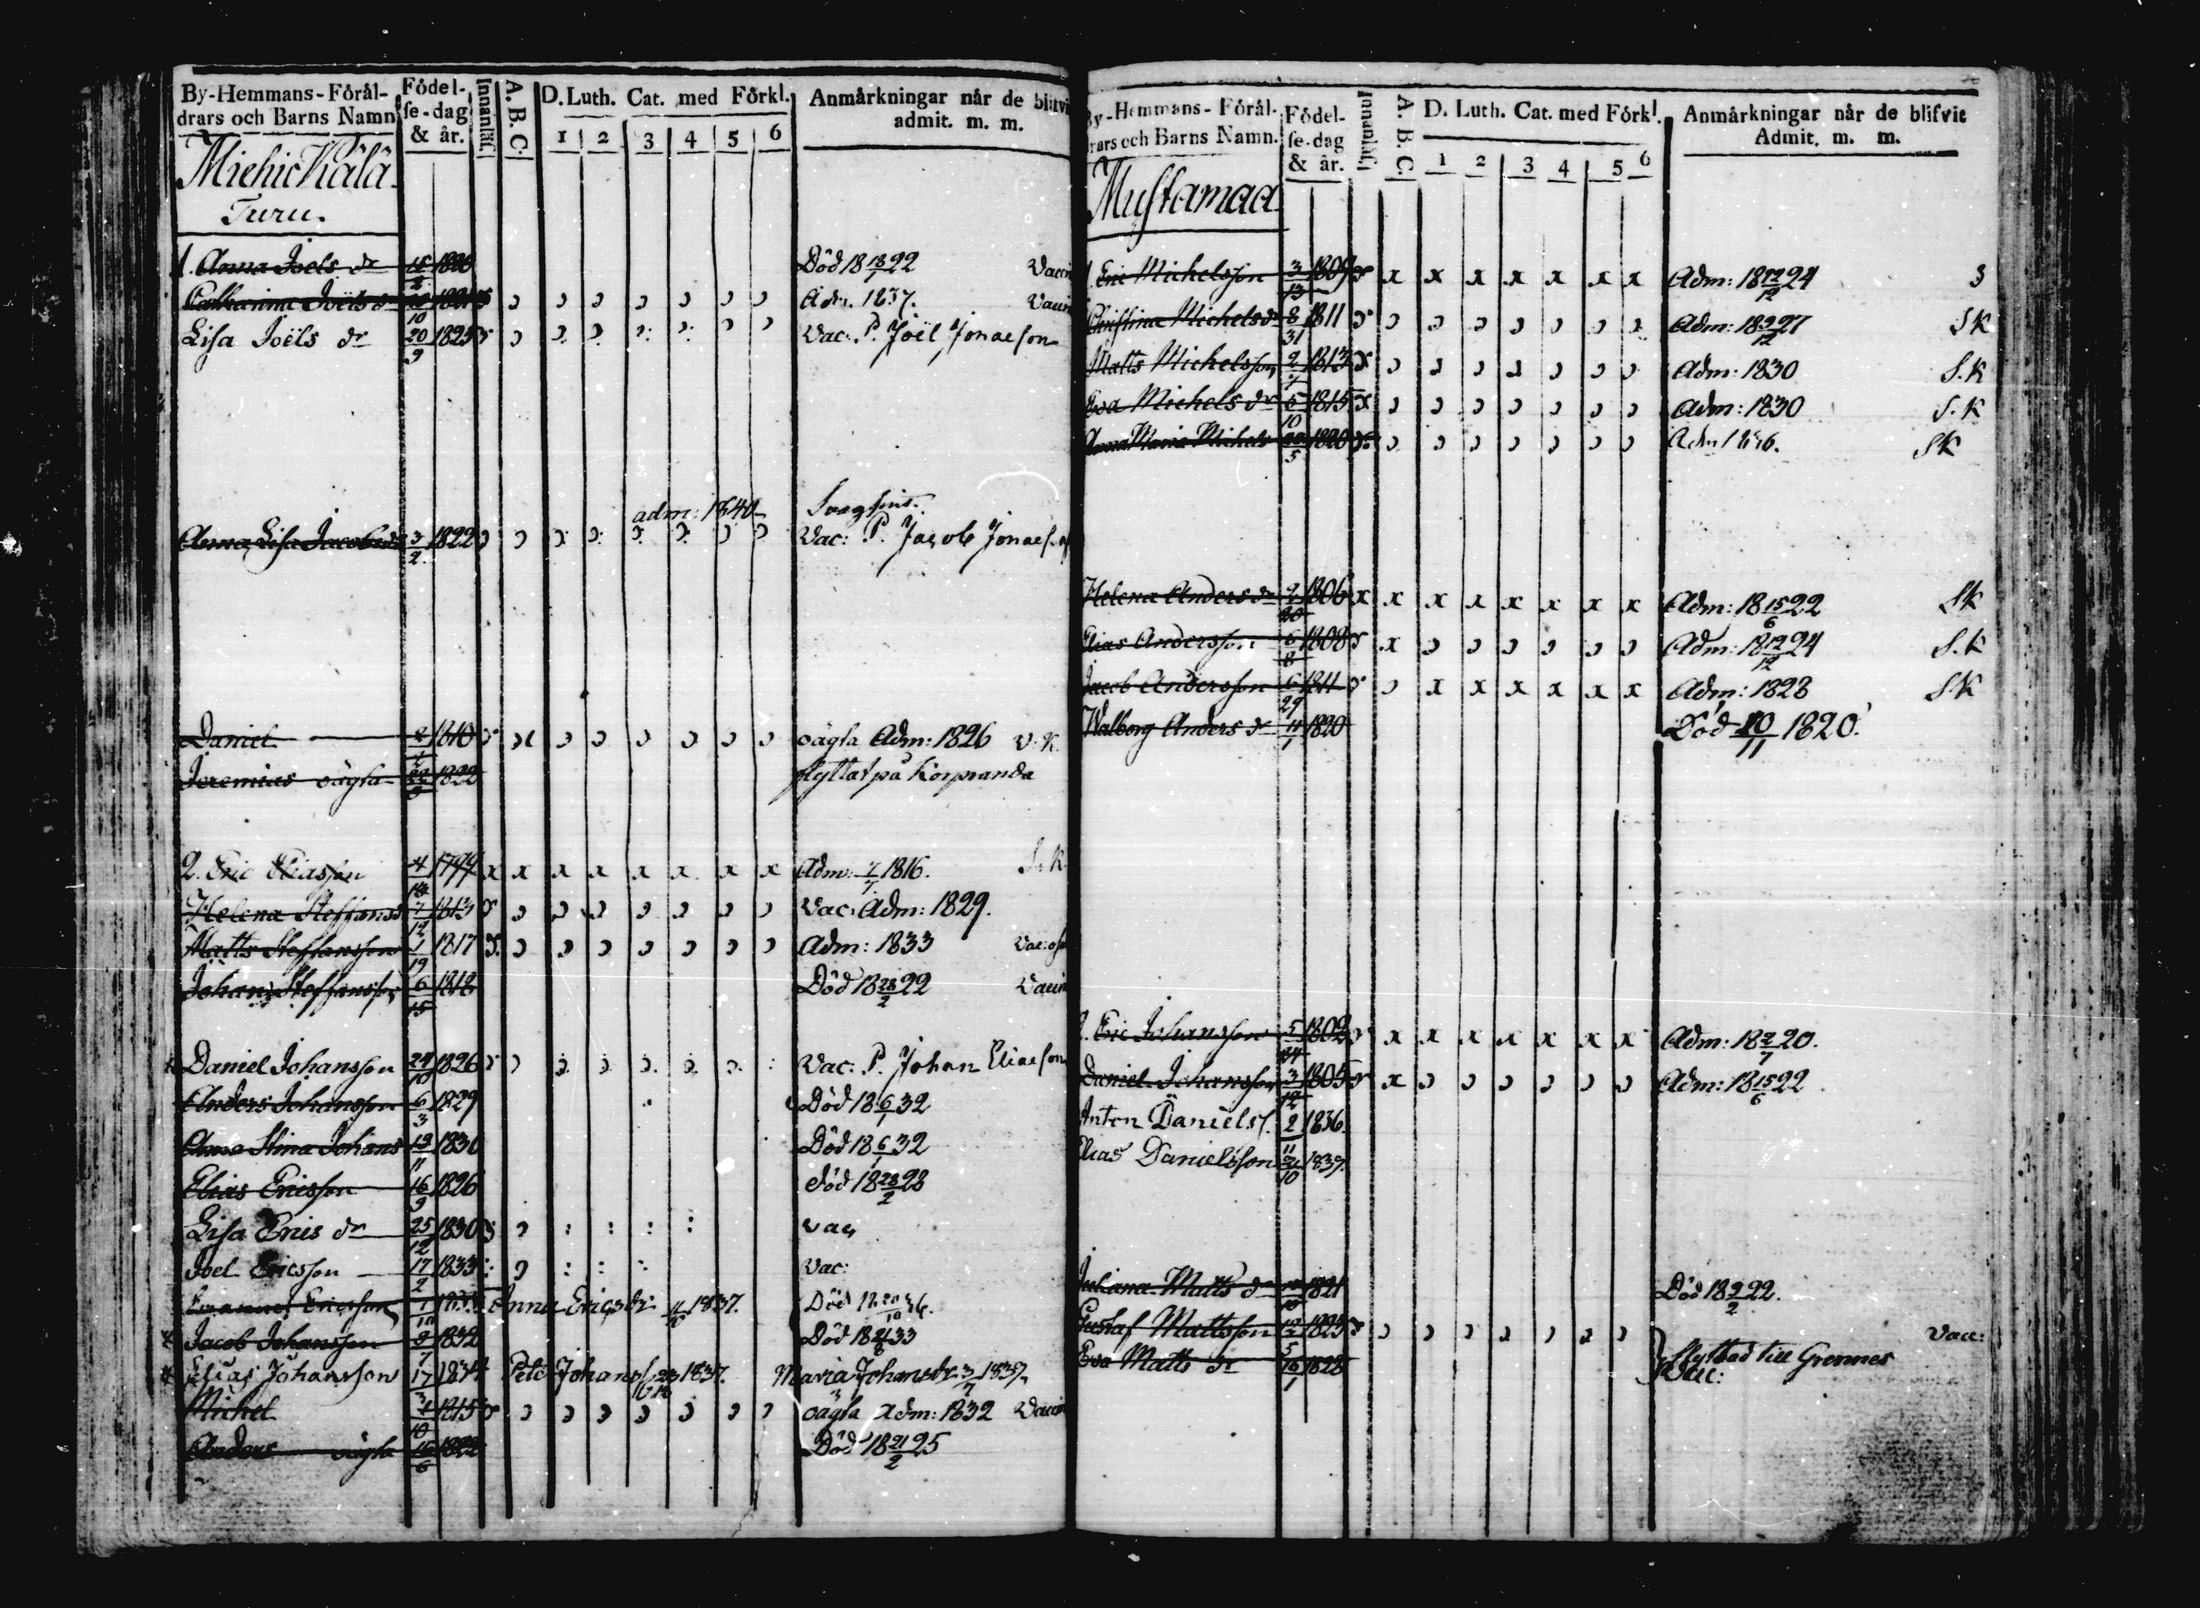 By-Hemmans-Förål-
drars och Barns Namn
Födel-
se-dag
& år.
Innanläs.
A. B. C.
D. Luth. Cat. med Förkl.
1 2 3 4 5 6
Anmårkningar når de blifvi
admit. m. m.
Miehickälä
Turu.
1. Anna Joels dr Död 18 18/ 22 Vacci
Catharina Joëls d Adm. 1837. Vaccin
Lisa Joëls dr 20/9 1825 Vac. P. Joël Jonaeson
adm: 1840 Svagsint.
Anna Lisa Jacobsdr 3/2 1822 Vac: P. Jacob Jonaes.
Daniel 1810 oägta Adm: 1826 V. K.
Jeremias oägta flyttat på Korpranda
2. Eric Eliasson 4/18 1799 x x x x x x x x Adm: 7/7 1816. S. K.
Helena Steffansd 7/12 1813 Vac: Adm: 1829.
Matts Steffansson 1/19 1817 Adm: 1833
Johan Steffansson 6/15 1818 Död 18 28/2 22 Vaccin
Daniel Johansson 24/10 1826 Vac: P. Johan Eliaeson
Anders Johansson 6/3 1829 Död 18 6/1 32
Anna Stina Johans 19/11 1830 Död 18 6/1 32
Elias Ericsson 16/9 1826 död 18 28/2 28
Lisa Erics dr 25/12 1830 vac
Joel Ericsson 17/2 1833 Vac:
Emanuel Ericsson Anna Ericsdr 1837. Död 18 20/10 36.
Jacob Johansson 9/7 1832 Död 18 33
Elias Johansson 17/3 1834 Pete Johanss 1837. Maria Johansdr 3/7 1837.
Michel 1815 oägta Adm: 1832 Vaccin
Anders oägta 16/6 1822 Död 18 21/2 25
By-Hemmans-Förål-
drars och Barns Namn.
Födel-
se-dag
& år.
Innanläs.
A. B. C.
D. Luth. Cat. med Förkl.
1 2 3 4 5 6
Anmårkningar når de blifvit
Admit. m. m.
Mustamaa
1. Eric Michelsson 3/13 1809 x x x x x x x Adm: 18 12/12 24 S
Christina Michelsdr 8/31 1811 Adm: 18 9/12 27 S K
Matts Michelsson 2/7 1813 Adm: 1830 S. K
Eva Michels dr 5/10 1815 Adm: 1830 S. K
Anna Maria Michels 1820 Adm 1836. SK
Helena Anders dr 9/20 1806 x x x x x x x x Adm: 18 15/6 22 SK
Elias Andersson 6/8 1808 Adm: 18 12/12 24 S. K
Jacob Andersson 6/29 1811 Adm: 1828 S. K
Walborg Anders dr 11/1 1820 Död 10/11 1820.
2. Eric Johansson 5/24 1802 x x x x x x x Adm: 18 2/7 20.
Daniel Johansson 3/12 1805 Adm: 18 15/6 22
Anton Daniels. 2/11 1836.
Elias Danielsson 1839.
Juliana Matts dr 1821 Död 18 9/2 22.
Gustaf Mattsson 1823 Vacc:
flyttad till Grennes
Eva Matts dr 16/1 1823 Vacc: